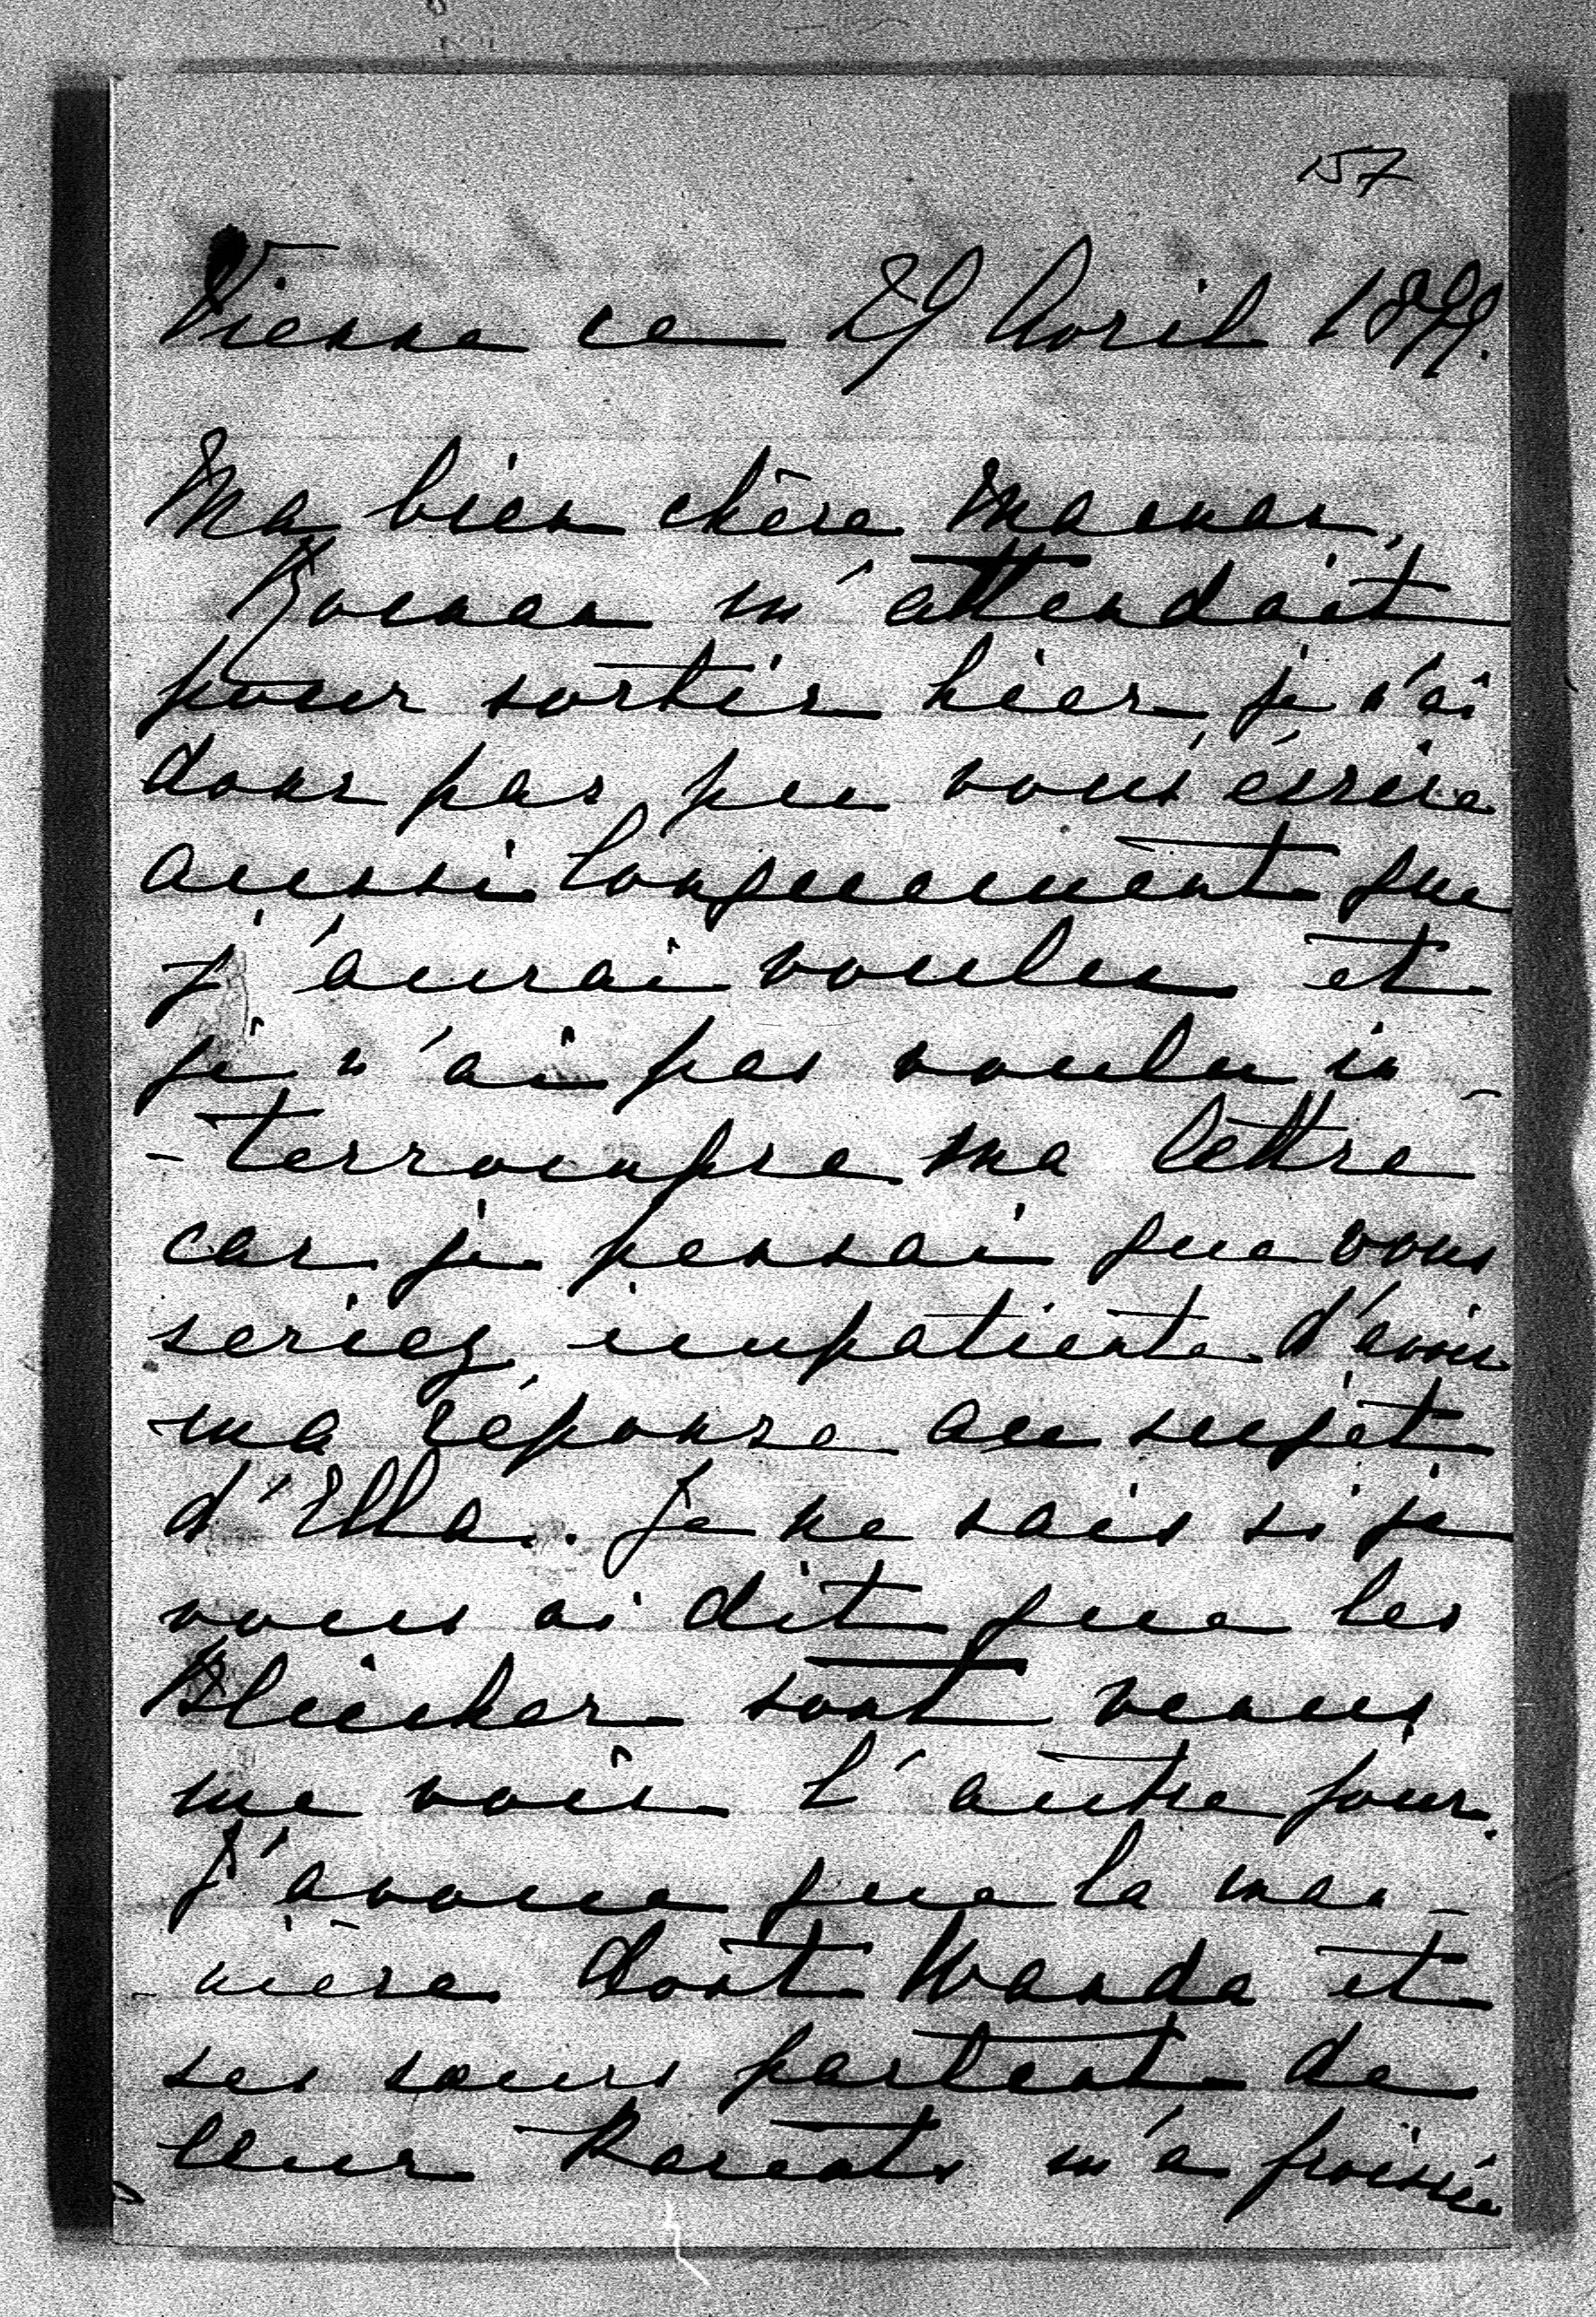 157
Vienne ce 29 Avril 1899.
Ma bien chère Maman,
Roman m'attendait
pour sortir hier je n'ai
donc pas pu vous écrire
aussi longuement que
j'aurai voulu et
je n'ai pas voulu in-
-terrompre ma lettre
car je pensai que vous
seriez impatiente d'avoir
ma réponse au sujet
d'Ella. Je ne sais si je
vous ai dit que les
sont venus
me voir l'autre jour.
J'avoue que la ma-
-nière dont Wanda et
ses sœurs parlent de
leur Parents m'a froissée